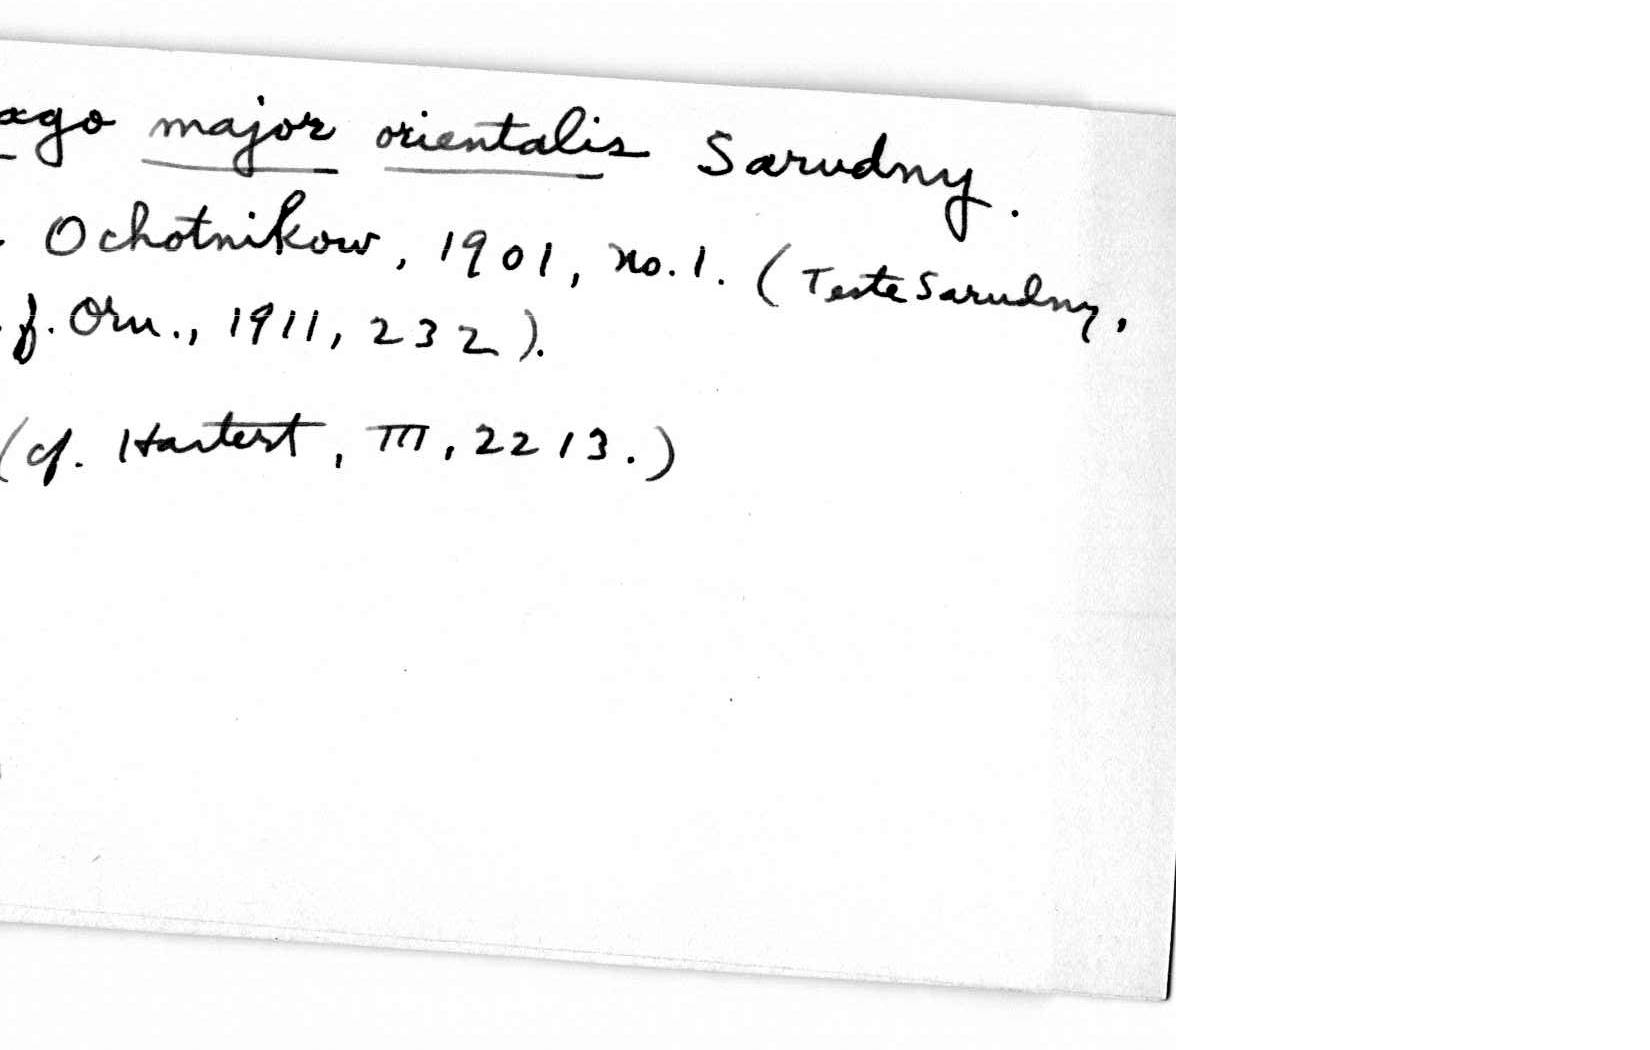 ago major orientalis Sarudny.
Ochotnikow, 1901, no. 1. (Teste Sarudny,
f. Orn., 1911, 232).
(cf. Hartert, III, 2213.)